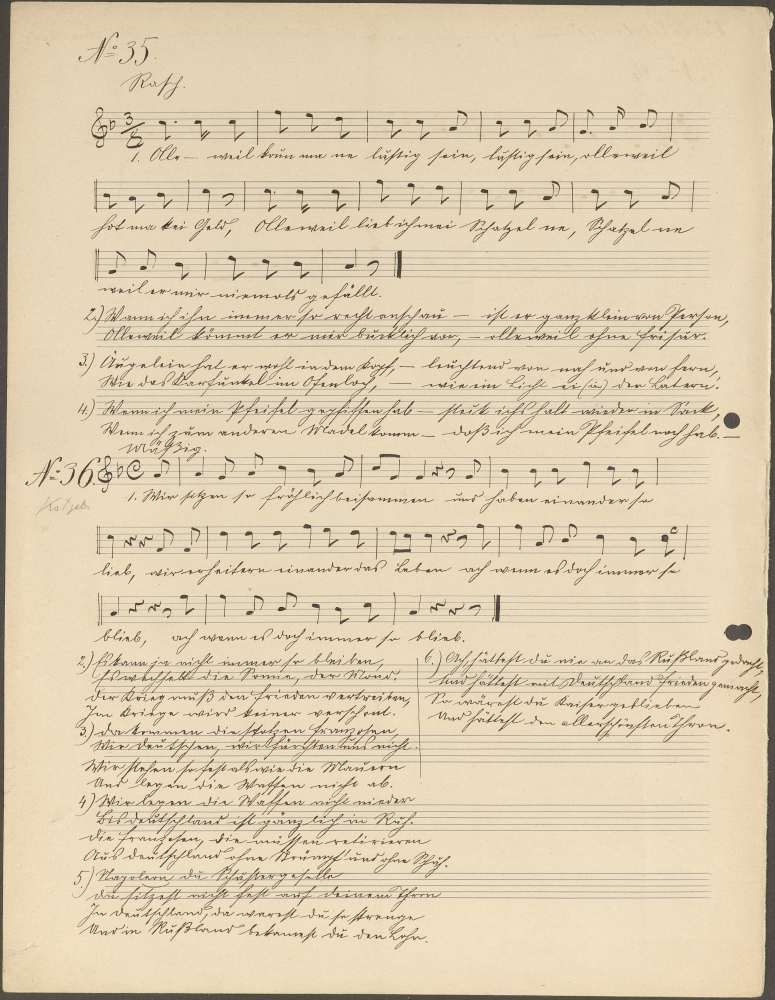 No 35.
Rasch.
3/8
1. Olle- weil kann ma ne lustig sein, lustig sein, olleweil
hot ma kei Geld, Olleweil lieb ich mei Schatzel ne, Schatzel ne
weil er mir niemols gefällt.
2.) Wann ich ihn immer so recht anschau – ist er ganz klein von Person,
Olleweil kömmt er mir bucklich vor, – olleweil ohne Frisur.
3.) Äugelein hat er wohl in dem Kopf, – leuchtend von nah und von fern,
Wie das Karfunkel im Ofenloch, – wie ein Licht ei (in) der Latern.
4.) Wenn ich mein Pfeifel gepfiffen hab – steck ichs halt wieder in Sack,
Wenn ich zum anderen Madel komm – daß ich mein Pfeifel noch hab. –
Mäßig.
No 36.
1. Wir sitzen so fröhlich beisammen und haben einander so
lieb, wir erheitern einander das Leben ach wenn es doch immer so
blieb, ach wenn es doch immer so blieb.
2.) Es kann ja nicht immer so bleiben,
Es wechselt die Sonne, der Mond.
Der Krieg muß den Frieden vertreiben,
Im Kriege wird keiner verschont.
3.) Da kommen die stolzen Franzosen,
Wir Deutschen, wir fürchten uns nicht.
Wir stehen so fest als wie die Mauern
Und legen die Waffen nicht ab.
4) Wir legen die Waffen nicht nieder
Bis Deutschland ist gänzlich in Ruh.
Die Franzosen, die müssen retirieren
Aus Deutschland ohne Strümpf und ohne Schuh.
5) Napoleon du Schustergeselle
du sitzest nicht fest auf deinem Thron
In Deutschland, da warest du so strenge
Und in Rußland bekamest du den Lohn.
6.) Ach hättest du nie an das Rußland gedacht,
Und hättest mit Deutschland Frieden gemacht,
So wärest du Kaiser geblieben
Und hättest den allerschönsten Thron.